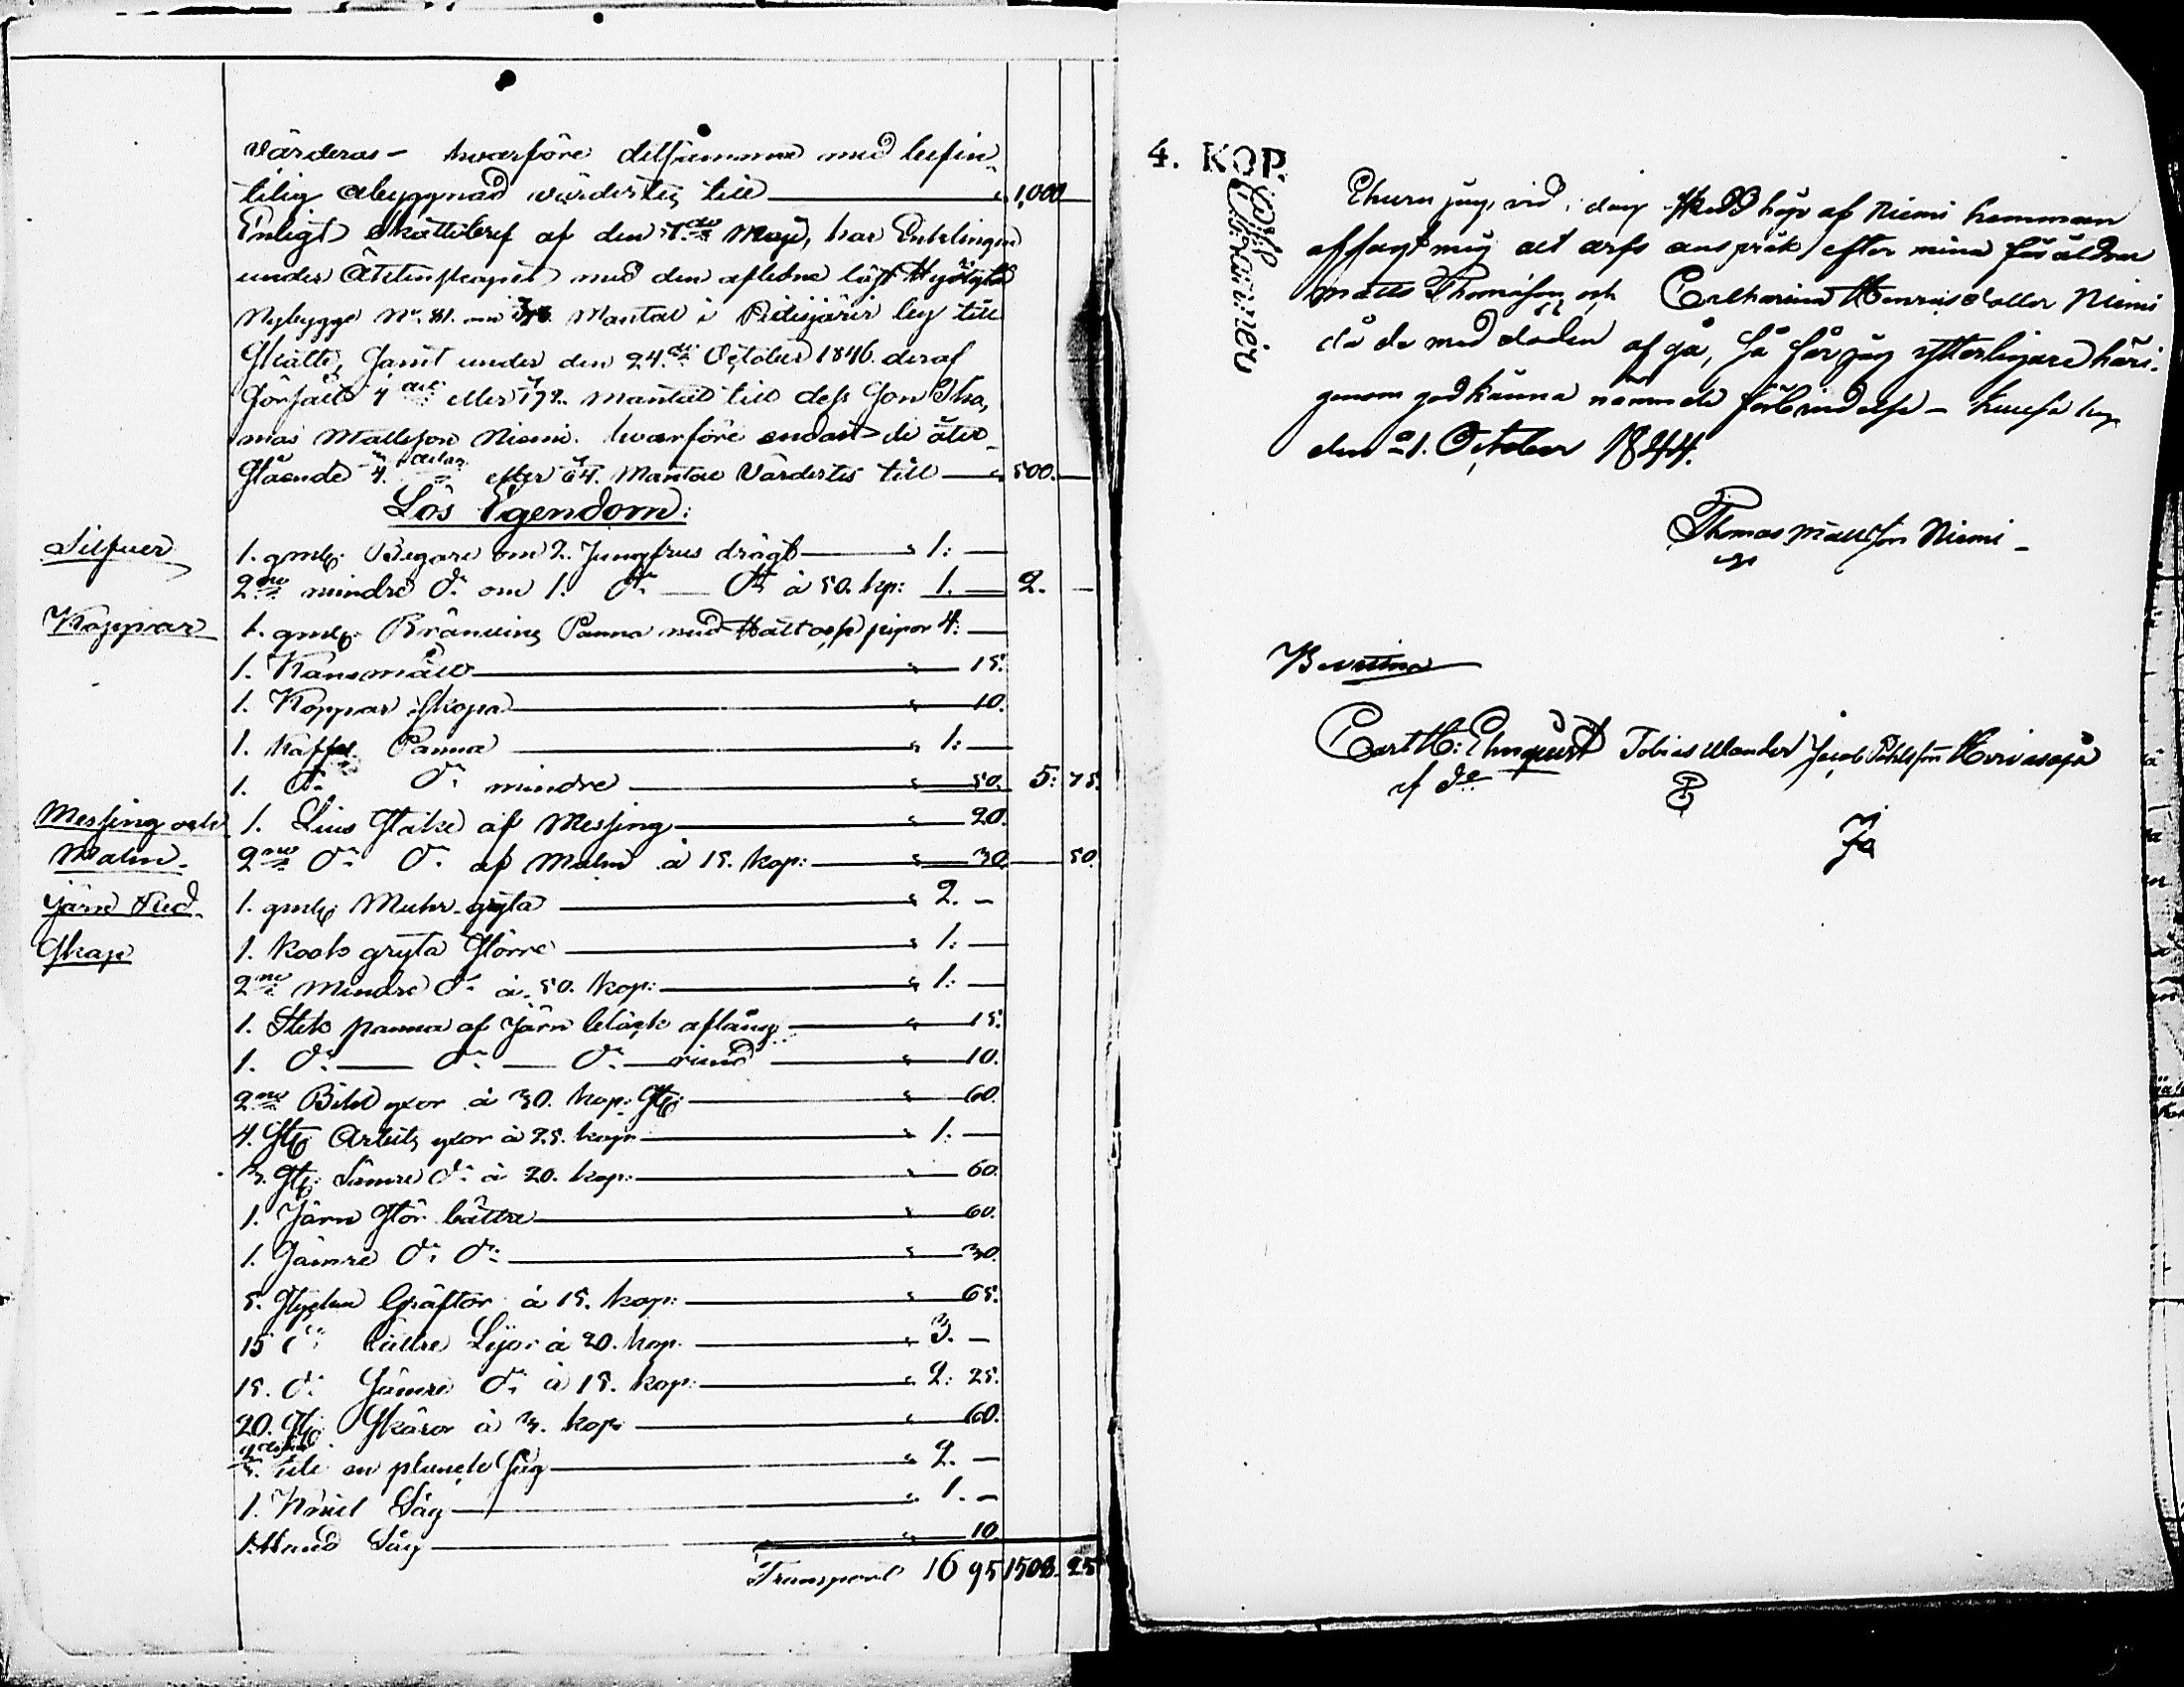 värderas – hvarföre detsamma med befin
telig åbyggnad värdertes till 1,000
Enligt Skattebref af den Maji, har Enklingen
under Äktenskapet med den aflidna löst
Nybygge No. 81. om Mantal i Pidisjärvi by till
Skatte, Samt under den 24.de October 1846. deraf
försålt eller mantal till dess Son Tho,
mas Mattsson Niemi. hvarföre endast de åter
Stående 4. delar eller 64. Mantal Värdertes till 500.
Lös Egendom:
Silfver
1. gml. Begare om 2. Jungfrus drägt 1: —
2.ne mindre do om 1. do — do à 50. kp: 1. — 2. —
Koppar
1. gml. Bränvins Panna med Hatt och pipor 4: —
1. 15.
1. Koppar Skopa 10.
1. Kaffe Panna 1: —
1. do do mindre 50. 5: 75.
Messing och
Malm
1. Lius Stake af Messing 20.
2.ne do do af Malm à 15. kop: 30 50.
Järn Red-
Skap
1. gml. Muhr-gryta 2. —
1. Kook gryta Större 1: —
2.ne Mindre do à 50. kop: 1: —
1. Stek panna af Järn bläck aflång 15.
1. do — do — do — rund 10.
2.ne Bihl yxor à 30. kop: St: 60.
4. St: Arbets yxor à 25. kop: 1: —
3. St: Sämre do à 20. kop: 60.
1. Järn Stör bättre 60.
1. Sämre do do 30.
5. Stycken Gräftor à 15. kop: 65.
15 do bättre Lijor à 20. kop. 3. —
15. do Sämre do à 15. kop: 2: 25.
20. St: Skäror à 3. kop: 60.
uti en planck Såg 2. —
1. Såg 1. —
1. Hand Såg 10.
Transport 16 95 1508. 25
4. KOP.
Silfver
Ehuru jag, vid i dag Skedd köp af Niemi hemman
afsagt mig alt arfs anspråk efter mina föräldrar
Matts Thomasson och Catharina Henrics dotter Niemi
då de med döden afgå, Så får jag ytterligare häri-
genom godkänna nämnde förbindelse –
den 21. October 1844.
Thomas Mattsson Niemi –
Bevittna
Carl H: Ehnqvist Tobias Ulander Jacob Påhlsson Hirvasoja